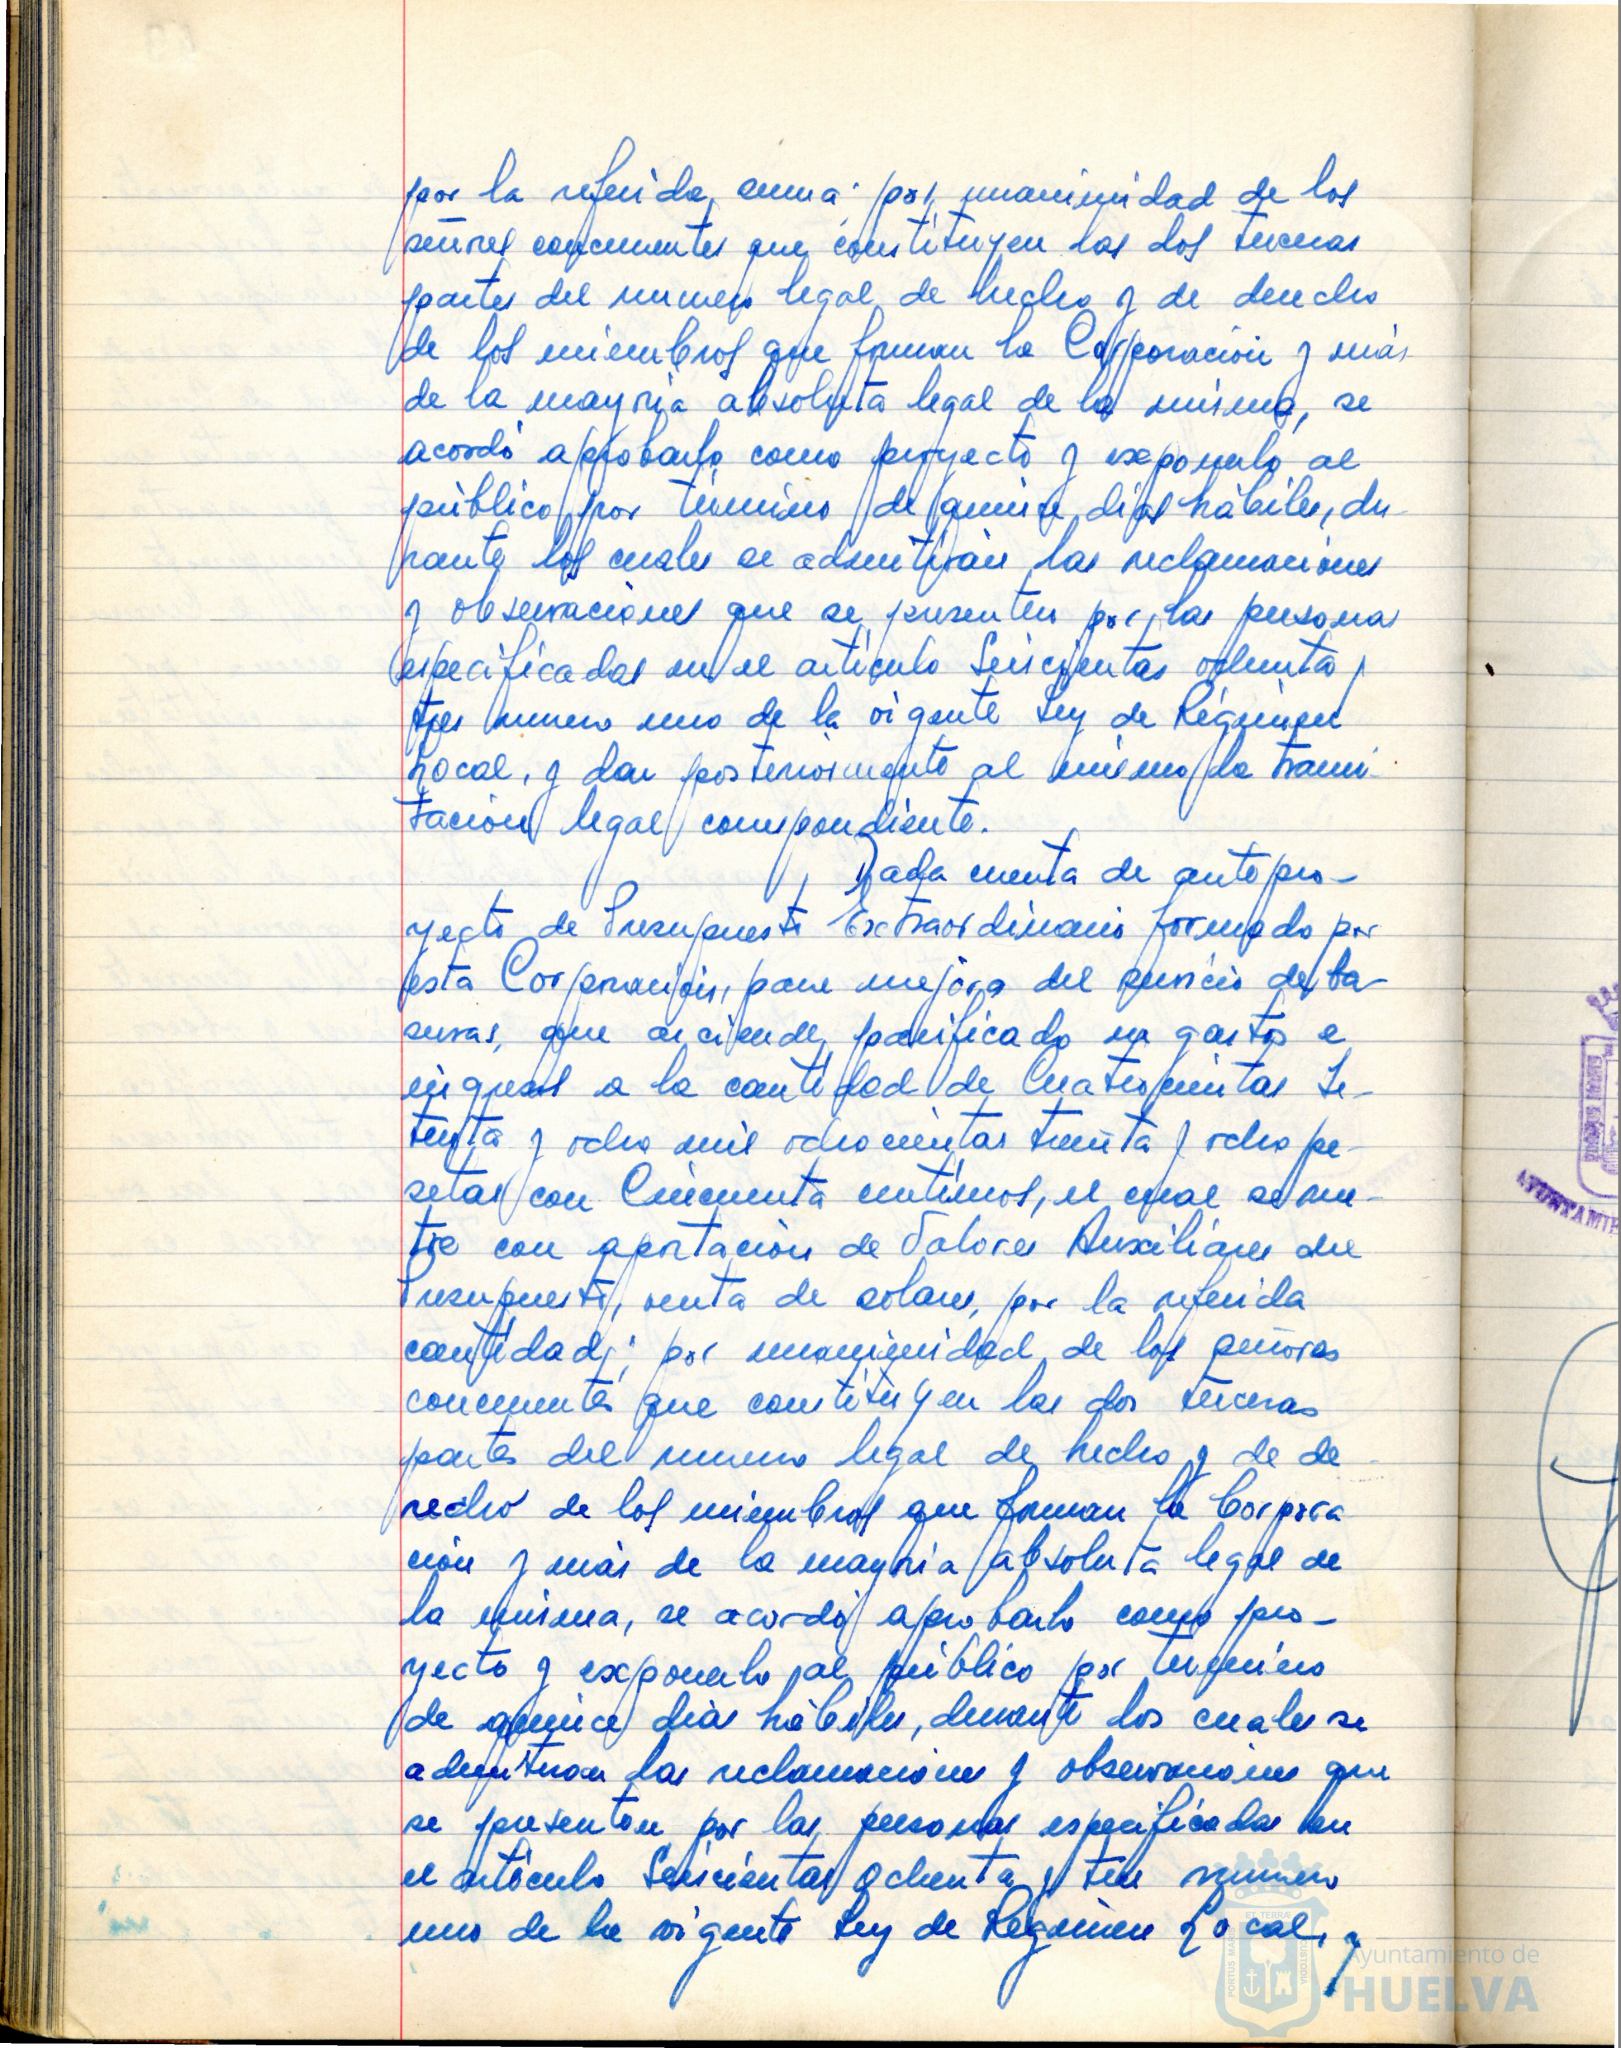 por la referida suma: por unanimidad de los
señores concurrentes que constituyen las dos terceras
partes del numero legal de hecho y de derecho
de los miembros que forman la Corporación y más
de la mayoria absoluta legal de la misma, se
acordó aprobarlo como proyecto y exponerlo al
público por término de quince dias hábiles, du-
rante los cuales se admitirán las reclamaciones
y observaciones que se presenten por las personas
especificadas en el artículo Seiscientas ochenta y
tres numero uno de la vigente Ley de Régimen
Local, y dar posteriormente al mismo la trami-
tación legal correspondiente.
Dada cuenta de antepro-
yecto de Presupuesto Extraordinario formado por
esta Corporación, para mejora del servicio de ba-
suras, que asciende parificado en gastos e
ingresos a la cantidad de Cuatrocientas Se-
tenta y ocho mil ochocientas treinta y ocho pe-
setas con Cincuenta centimos, el cual se nu-
tre con aportación de Valores Auxiliares del
Presupuesto, venta de solares, por la referida
cantidad; por unanimidad de los señores
concurrentes que constituyen las dos terceras
partes del numero legal de hecho y de de
recho de los miembros que forman la Corpora
ción y más de la mayoria absoluta legal de
la misma, se acordó aprobarlo como pro-
yecto y exponerlo al público por termino
de quince dias hábiles, durante los cuales se
admitiran las reclamaciones y observaciones que
se presenten por las personas especificadas en
el artículo Seiscientas ochenta y tres numero
uno de la vigente Ley de Régimen Local, y
AYUNTAMIE
PORTUS MARIS ET TERRAE CUSTODIA
Ayuntamiento de
HUELVA